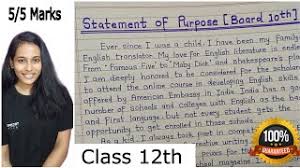 5/5 Marks
Statement of Purpose [Board 10th]
Ever since I was a child, I have been my family
English translator. My love for English literature is endless
from 'Famous Five' to 'Moby Dick' and Shakespeare's plays
I am deeply honored to be considered for the scholarship
to attend the online course in developing English
offered by American Embassy in India. India has a
number of schools and colleges with English as the
and first language, but not every student gets
opportunity to get enrolled in those schools.
As a kid, I always took part in
Class 12th
100%
GUARANTEED